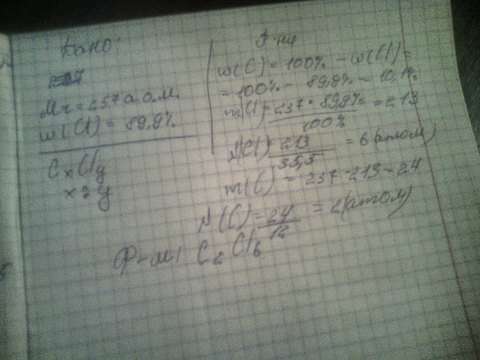 Дано:
Mr = 237 а.о.м.
w(Cl) = 89,9%
CxCly
x, y
w(C) = 100% - w(Cl) =
= 100% - 89,9% = 10,1%
m(Cl) = 237 * 89,9% / 100% = 213
N(Cl) = 213 / 35,5 = 6 (атом)
m(C) = 237 - 213 = 24
N(C) = 24 / 12 = 2 (атом)
Ф-ла: C2Cl6